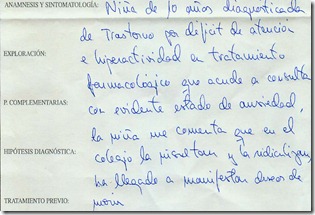 ANAMNESIS Y SINTOMATOLOGÍA: Niña de 10 años diagnosticada
de Trastorno por déficit de atención
EXPLORACIÓN: e hiperactividad en tratamiento
farmacológico que acude a consulta
P. COMPLEMENTARIAS: con evidente estado de ansiedad,
la niña me comenta que en el
HIPÓTESIS DIAGNÓSTICA: colegio la insultan y la ridiculizan,
ha llegado a manifestar deseos de
TRATAMIENTO PREVIO: morir